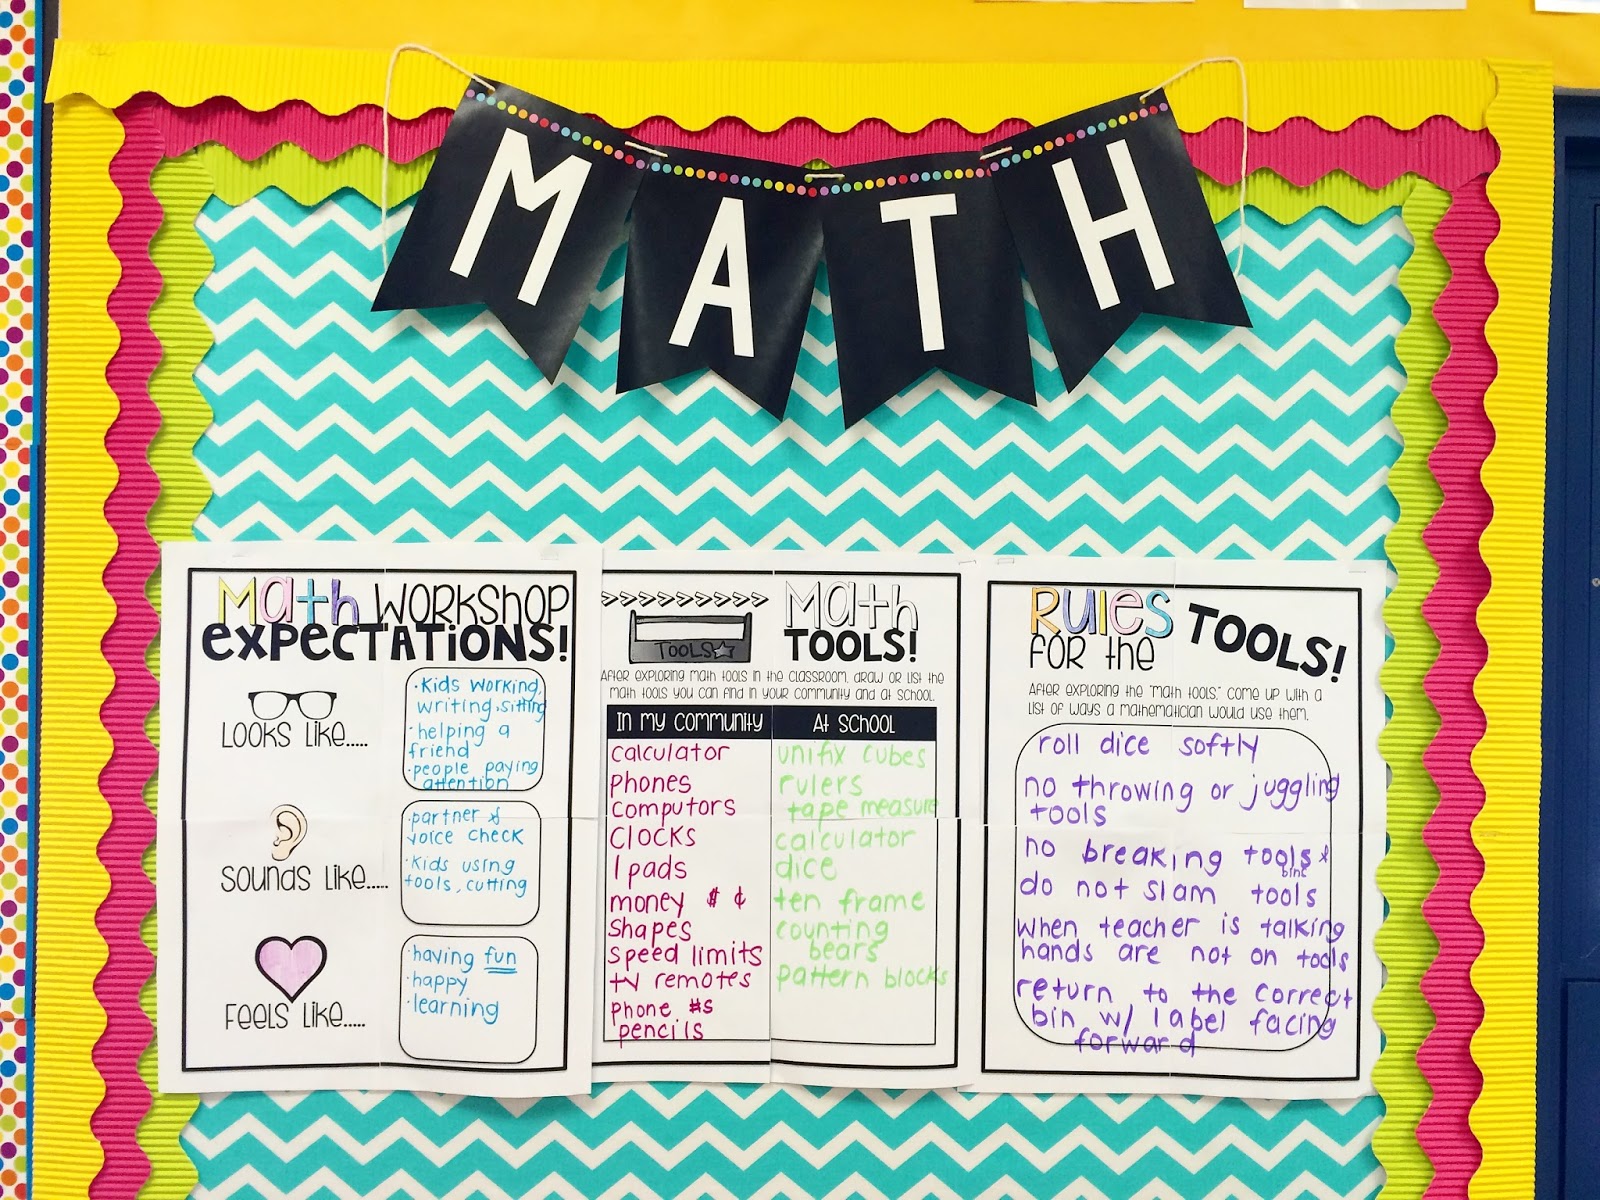 MATH
Math Workshop
Expectations!
Looks like.....
·Kids working,
writing, sitting
·helping a
friend
·people paying
attention
Sounds like.....
·partner &
voice check
·kids using
tools, cutting
Feels like.....
·having fun
·happy
·learning
>>>>>>>>>
TOOLS
Math
TOOLS!
After exploring math tools in the classroom, draw or list the
math tools you can find in your community and at school.
In my community
calculator
phones
computors
clocks
Ipads
money $ ¢
shapes
speed limits
tv remotes
phone #s
pencils
At school
unifix cubes
rulers
tape measure
calculator
dice
ten frame
counting
bears
pattern blocks
Rules
for the
TOOLS!
After exploring the "math tools," come up with a
list of ways a mathematician would use them.
roll dice softly
no throwing or juggling
tools
no breaking tools &
bins
do not slam tools
when teacher is talking
hands are not on tools
return to the correct
bin w/ label facing
forward